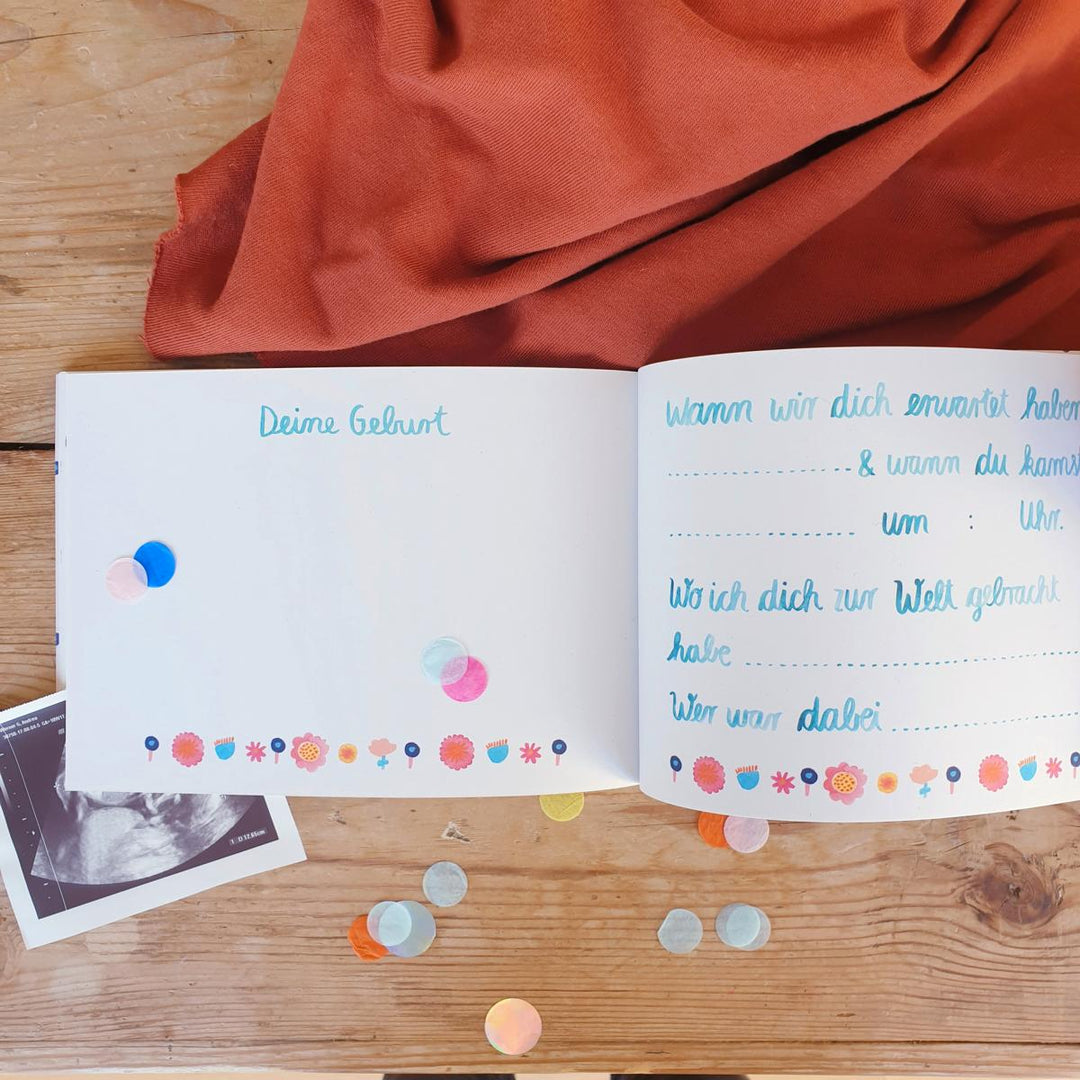 Deine Geburt
Wann wir dich erwartet haben
& wann du kamst
um : Uhr.
Wo ich dich zur Welt gebracht
habe
Wer war dabei
1 D 12.65cm